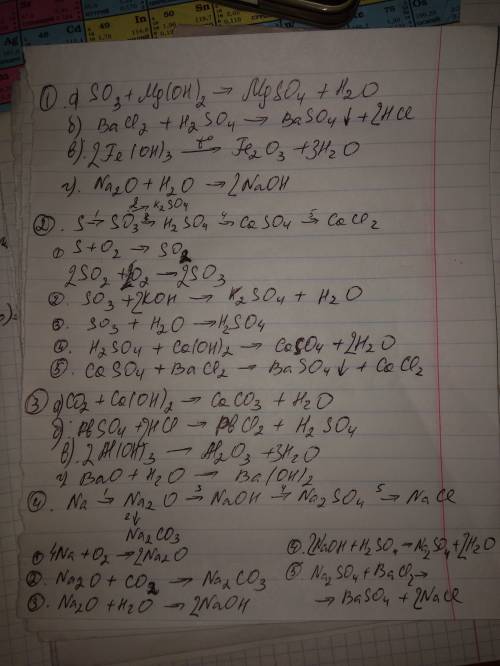 49 In
50 Sn
Ag
Cd
① а) SO3 + Mg(OH)2 → MgSO4 + H2O
б) BaCl2 + H2SO4 → BaSO4↓ + 2HCl
в) 2Fe(OH)3 —t°→ Fe2O3 + 3H2O
г) Na2O + H2O → 2NaOH
2→ K2SO4
② S 1→ SO3 3→ H2SO4 4→ CaSO4 5→ CaCl2
① S + O2 → SO2
2SO2 + O2 → 2SO3
② SO3 + 2KOH → K2SO4 + H2O
③ SO3 + H2O → H2SO4
④ H2SO4 + Ca(OH)2 → CaSO4 + 2H2O
⑤ CaSO4 + BaCl2 → BaSO4↓ + CaCl2
③ а) CO2 + Ca(OH)2 → CaCO3 + H2O
б) PbSO4 + 2HCl → PbCl2 + H2SO4
в) 2Al(OH)3 → Al2O3 + 3H2O
г) BaO + H2O → Ba(OH)2
④ Na 1→ Na2O 3→ NaOH 4→ Na2SO4 5→ NaCl
2↓
Na2CO3
① 4Na + O2 → 2Na2O
② Na2O + CO2 → Na2CO3
③ Na2O + H2O → 2NaOH
④ 2NaOH + H2SO4 → Na2SO4 + 2H2O
⑤ Na2SO4 + BaCl2 →
→ BaSO4 + 2NaCl